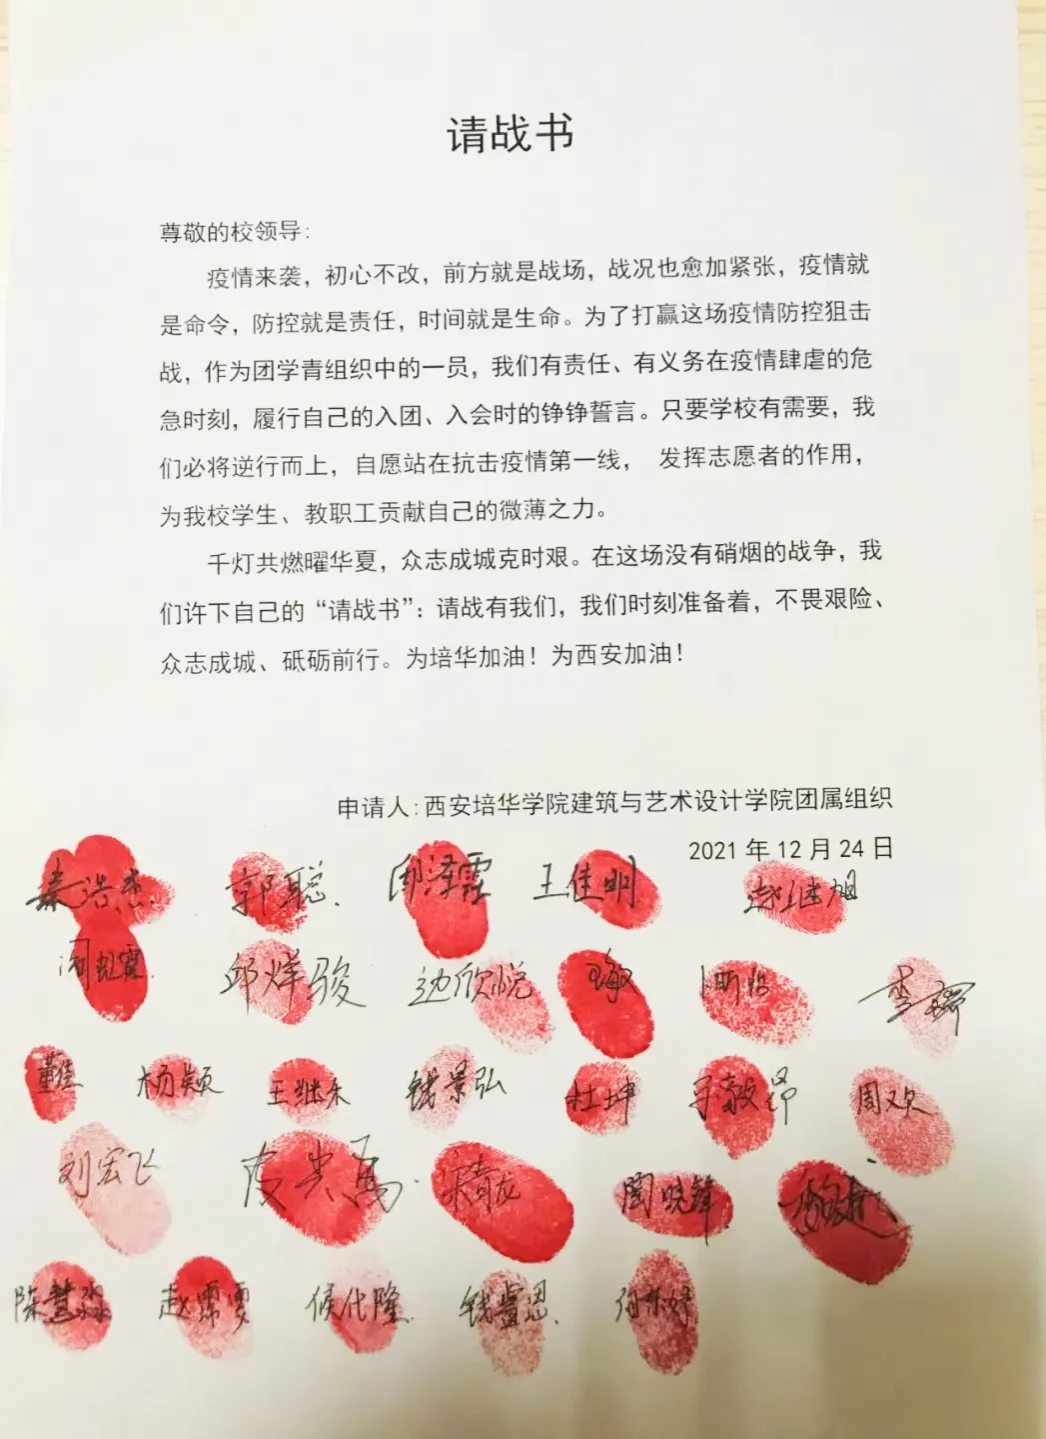 请战书
尊敬的校领导：
疫情来袭，初心不改，前方就是战场，战况也愈加紧张，疫情就
是命令，防控就是责任，时间就是生命。为了打赢这场疫情防控狙击
战，作为团学青组织中的一员，我们有责任、有义务在疫情肆虐的危
急时刻，履行自己的入团、入会时的铮铮誓言。只要学校有需要，我
们必将逆行而上，自愿站在抗击疫情第一线， 发挥志愿者的作用，
为我校学生、教职工贡献自己的微薄之力。
千灯共燃曜华夏，众志成城克时艰。在这场没有硝烟的战争，我
们许下自己的“请战书”：请战有我们，我们时刻准备着，不畏艰险、
众志成城、砥砺前行。为培华加油！为西安加油！
申请人：西安培华学院建筑与艺术设计学院团属组织
2021 年 12 月 24 日
秦浩杰 郭聪 周泽霖 王佳明 赵继旭
邱烊骏 边欣悦 王敏 卜昕怡 李
董佳 杨颖 王继禾 钱景弘 杜坤 周欢
刘宏飞 陶晓锋
陈慧淼 赵霈雯 候代隆